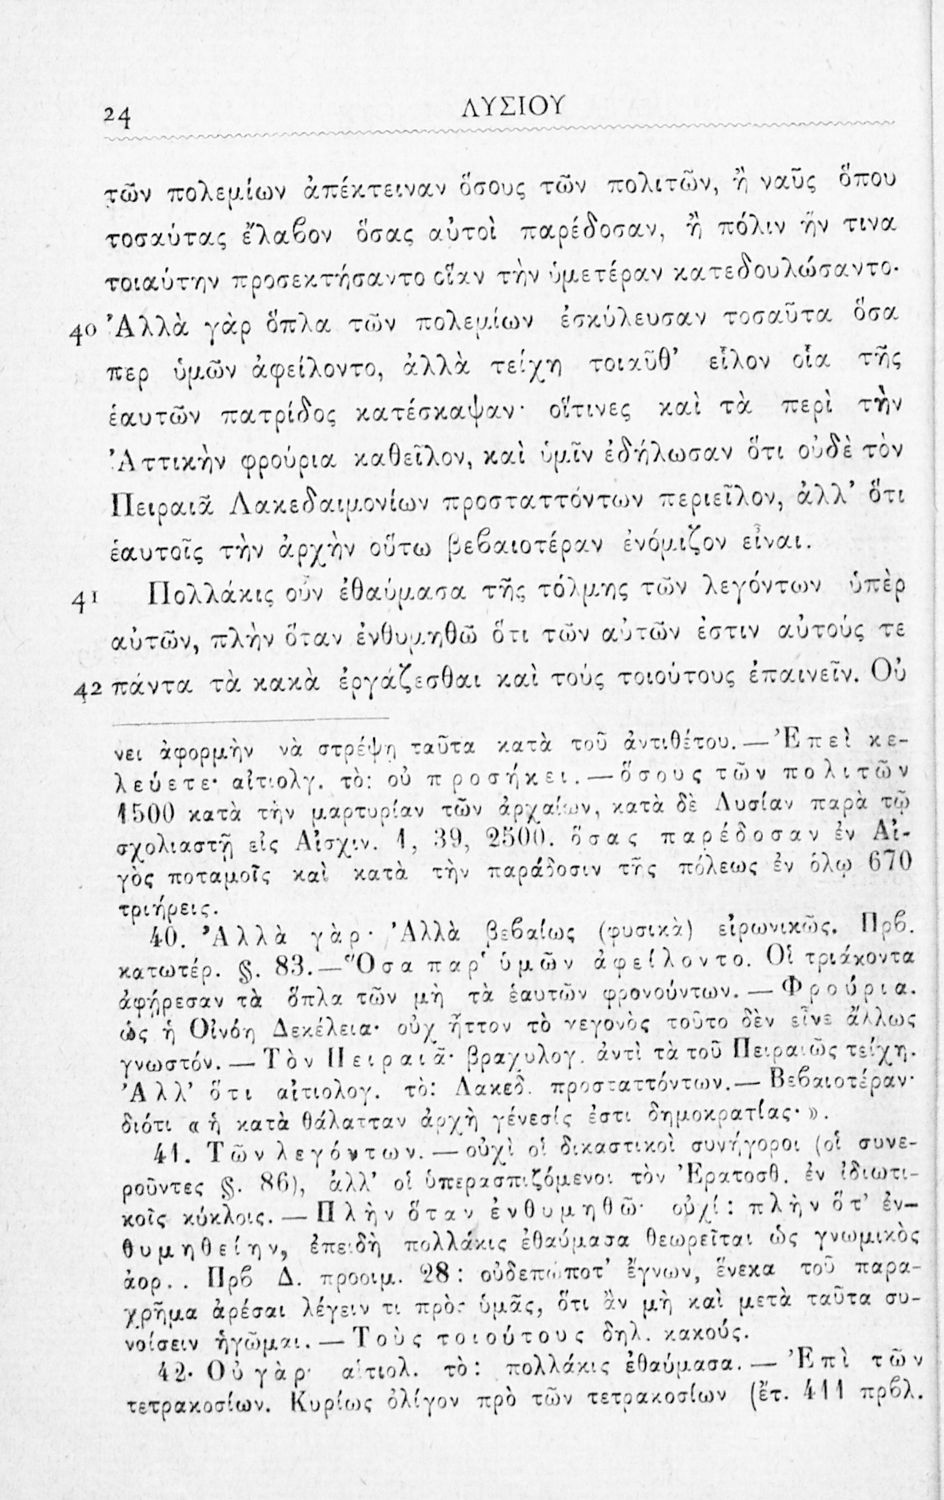 24 ΛΥΣΙΟΥ
τῶν πολεμίων ἀπέκτειναν ὅσους τῶν πολιτῶν, ἢ ναῦς ὅπου
τοσαύτας ἔλαβον ὅσας αὐτοὶ παρέδοσαν, ἢ πόλιν ἥν τινα
τοιαύτην προσεκτήσαντο οἵαν τὴν ὑμετέραν κατεδουλώσαντο·
40 Ἀλλὰ γὰρ ὅπλα τῶν πολεμίων ἐσκύλευσαν τοσαῦτα ὅσα
περ ὑμῶν ἀφείλοντο, ἀλλὰ τείχη τοιαῦθ’ εἷλον οἷα τῆς
ἑαυτῶν πατρίδος κατέσκαψαν· οἵτινες καὶ τὰ περὶ τὴν
Ἀττικὴν φρούρια καθεῖλον, καὶ ὑμῖν ἐδήλωσαν ὅτι οὐδὲ τὸν
Πειραιᾶ Λακεδαιμονίων προσταττόντων περιεῖλον, ἀλλ’ ὅτι
ἑαυτοῖς τὴν ἀρχὴν οὕτω βεβαιοτέραν ἐνόμιζον εἶναι.
41 Πολλάκις οὖν ἐθαύμασα τῆς τόλμης τῶν λεγόντων ὑπὲρ
αὐτῶν, πλὴν ὅταν ἐνθυμηθῶ ὅτι τῶν αὐτῶν ἐστιν αὐτούς τε
42 πάντα τὰ κακὰ ἐργάζεσθαι καὶ τοὺς τοιούτους ἐπαινεῖν. Οὐ
νει ἀφορμὴν νὰ στρέψῃ ταῦτα κατὰ τοῦ ἀντιθέτου. — Ἐπεὶ κε-
λεύετε· αἰτιολγ. τὸ: οὐ προσήκει. — ὅσους τῶν πολιτῶν
1500 κατὰ τὴν μαρτυρίαν τῶν ἀρχαίων, κατὰ δὲ Λυσίαν παρὰ τῷ
σχολιαστῇ εἰς Αἰσχιν. 1, 39, 2500. ὅσας παρέδοσαν ἐν Αἰ-
γὸς ποταμοῖς καὶ κατὰ τὴν παράδοσιν τῆς πόλεως ἐν ὅλῳ 670
τριήρεις.
40. Ἀλλὰ γὰρ· Ἀλλὰ βεβαίως (φυσικὰ) εἰρωνικῶς. Πρβ.
κατωτέρ. §. 83. — Ὅσα παρ' ὑμῶν ἀφείλοντο. Οἱ τριάκοντα
ἀφῄρεσαν τὰ ὅπλα τῶν μὴ τὰ ἑαυτῶν φρονούντων. — Φρούρια.
ὡς ἡ Οἰνόη Δεκέλεια· οὐχ ἧττον τὸ γεγονὸς τοῦτο δὲν εἶνε ἄλλως
γνωστόν. — Τὸν Πειραιᾶ· βραχυλογ. ἀντὶ τὰ τοῦ Πειραιῶς τείχη.
Ἀλλ’ ὅτι αἰτιολογ. τὸ: Λακεδ. προσταττόντων. — Βεβαιοτέραν·
διότι «ἡ κατὰ θάλατταν ἀρχὴ γένεσίς ἐστι δημοκρατίας· ».
41. Τῶν λεγόντων. — οὐχὶ οἱ δικαστικοὶ συνήγοροι (οἱ συνε-
ροῦντες §. 86), ἀλλ’ οἱ ὑπερασπιζόμενοι τὸν Ἐρατοσθ. ἐν ἰδιωτι-
κοῖς κύκλοις. — Πλὴν ὅταν ἐνθυμηθῶ· οὐχί: πλὴν ὅτ’ ἐν-
θυμηθείην, ἐπειδὴ πολλάκις ἐθαύμασα θεωρεῖται ὡς γνωμικὸς
ἀορ. . Πρβ Δ. προοιμ. 28: οὐδεπώποτ’ ἔγνων, ἕνεκα τοῦ παρα-
χρῆμα ἀρέσαι λέγειν τι πρὸς ὑμᾶς, ὅτι ἂν μὴ καὶ μετὰ ταῦτα συ-
νοίσειν ἡγῶμαι. — Τοὺς τοιούτους δηλ. κακούς.
42· Οὐ γὰρ· αἰτιολ. τὸ: πολλάκις ἐθαύμασα. — Ἐπὶ τῶν
τετρακοσίων. Κυρίως ὀλίγον πρὸ τῶν τετρακοσίων (ἔτ. 411 πρβλ.